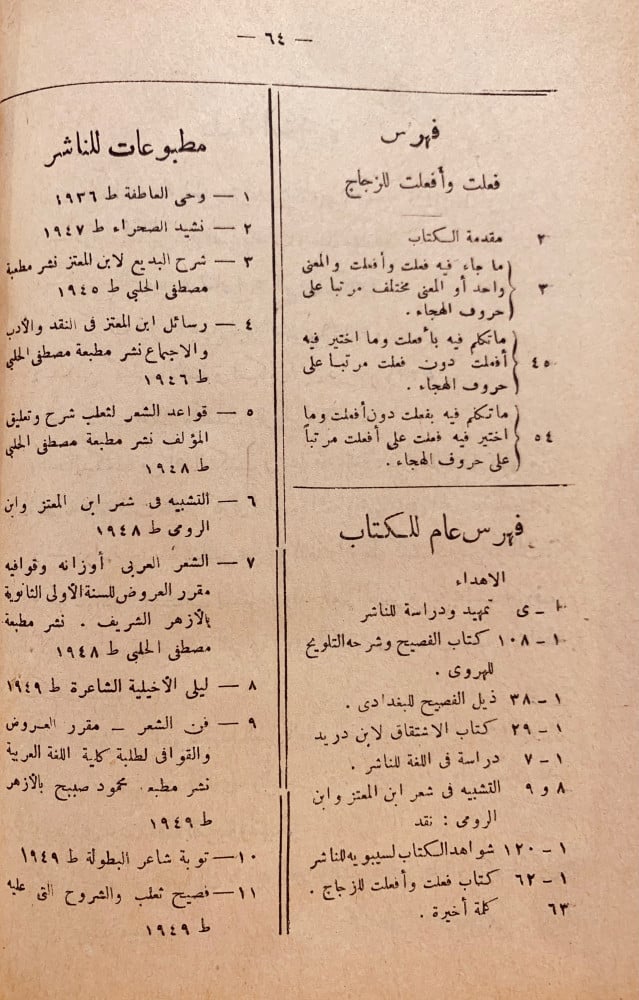 — ٦٤ —
فهرس
فعلت وأفعلت للزجاج
٢ مقدمة الكتاب
ما جاء فيه فعلت وأفعلت والمعنى
٣ واحد أو المعنى مختلف مرتبا على
حروف الهجاء .
ماتكلم فيه بأفعلت وما اختير فيه
٤٥ أفعلت دون فعلت مرتبا على
حروف الهجاء .
ماتكلم فيه بفعلت دون أفعلت وما
٥٤ اختير فيه فعلت على أفعلت مرتباً
على حروف الهجاء .
فهرس عام للكتاب
الاهداء
ا - ى تمهيد ودراسة للناشر
١ - ١٠٨ كتاب الفصيح وشرحه التلويح
للهروى .
١ - ٣٨ ذيل الفصيح للبغدادى .
١ - ٢٩ كتاب الاشتقاق لابن دريد
١ - ٧ دراسة فى اللغة للناشر .
٨ و ٩ التشبيه فى شعر ابن المعتز وابن
الرومى : نقد
١ - ١٢٠ شواهد الكتاب لسيبويه للناشر
١ - ٦٢ كتاب فعلت وأفعلت للزجاج .
٦٣ كلمة أخيرة .
مطبوعات للناشر
١ — وحى العاطفة ط ١٩٣٦
٢ — نشيد الصحراء ط ١٩٤٧
٣ — شرح البديع لابن المعتز نشر مطبعة
مصطفى الحلبى ط ١٩٤٥
٤ — رسائل ابن المعتز فى النقد والأدب
والاجتماع نشر مطبعة مصطفى الحلبى
ط ١٩٤٦
٥ — قواعد الشعر لثعلب شرح وتعليق
المؤلف نشر مطبعة مصطفى الحلبى
ط ١٩٤٨
٦ — التشبيه فى شعر ابن المعتز وابن
الرومى ط ١٩٤٨
٧ — الشعر العربى أوزانه وقوافيه
مقرر العروض للسنة الأولى الثانوية
بالأزهر الشريف . نشر مطبعة
مصطفى الحلبى ط ١٩٤٨
٨ — ليلى الأخيلية الشاعرة ط ١٩٤٩
٩ — فن الشعر — مقرر العروض
والقوافى لطلبة كلية اللغة العربية
نشر مطبعة محمود صبيح بالأزهر
ط ١٩٤٩
١٠ — توبة شاعر البطولة ط ١٩٤٩
١١ — فصيح ثعلب والشروح التى عليه
ط ١٩٤٩